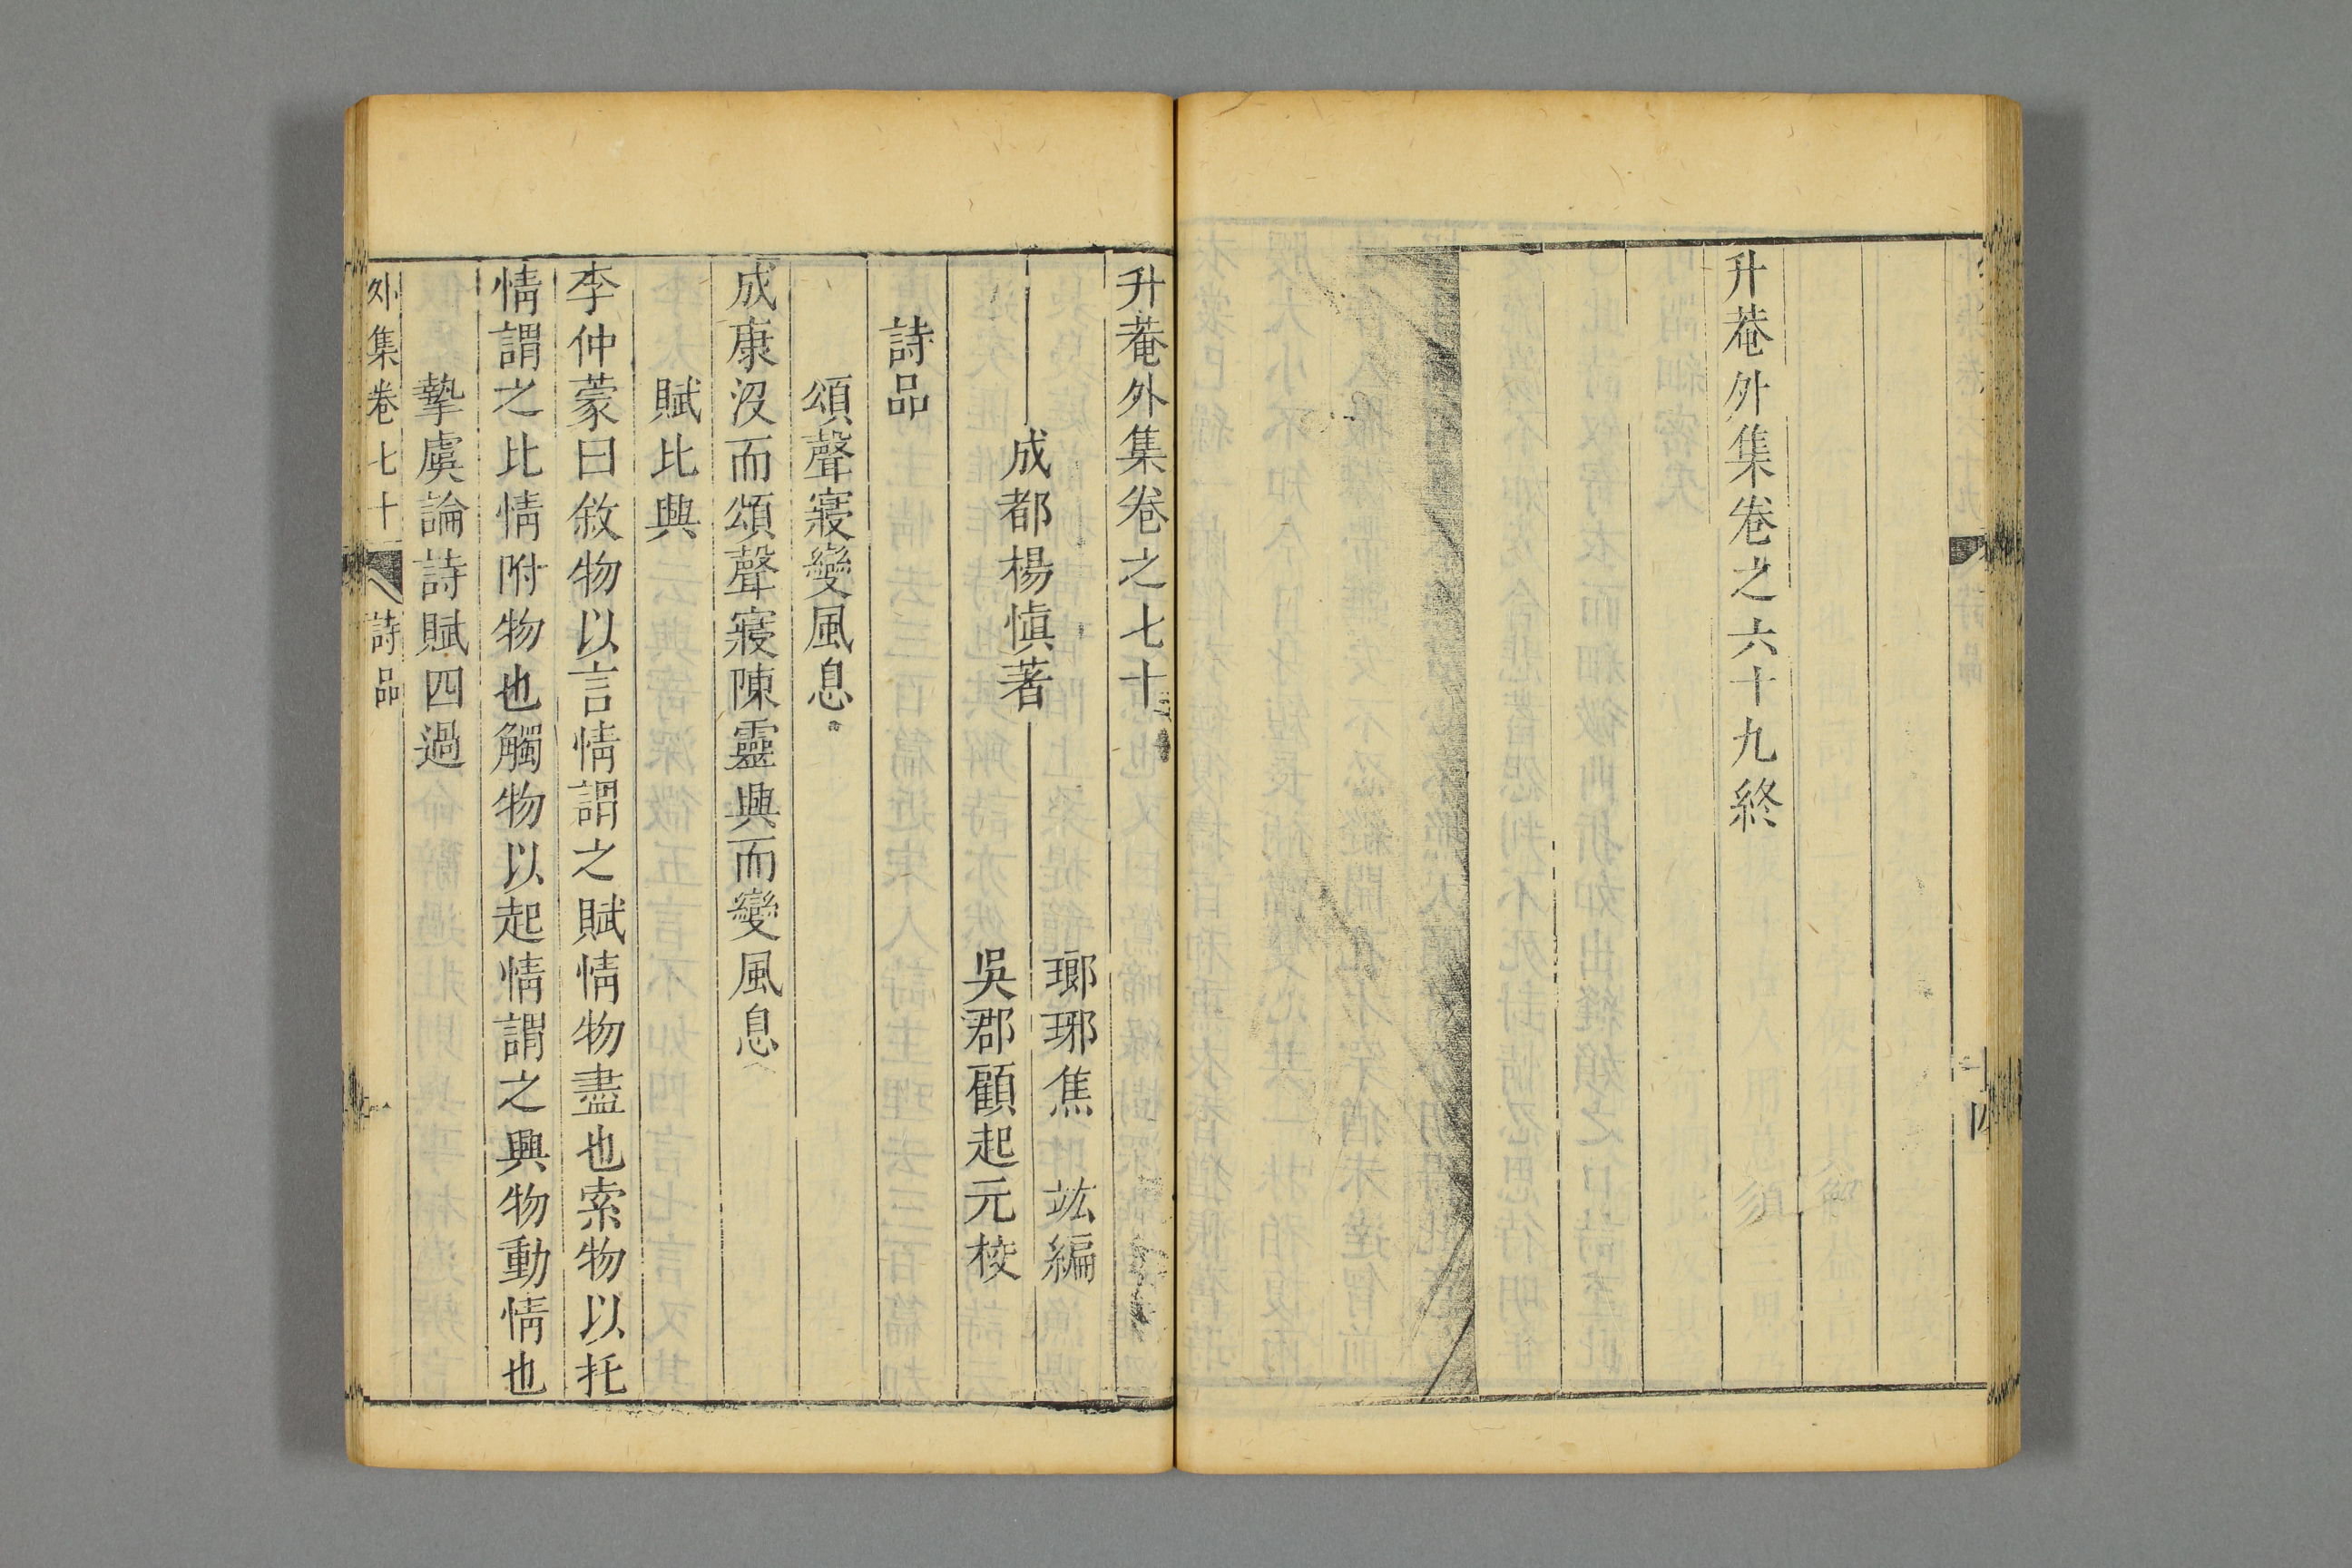 升菴外集卷之六十九終
升菴外集卷之七十
成都楊慎著
瑯琊焦竑編
吳郡顧起元校
詩品
頌聲寢變風息
成康沒而頌聲寢陳靈興而變風息
賦比興
李仲蒙曰敘物以言情謂之賦情物盡也索物以托
情謂之比情附物也觸物以起情謂之興物動情也
摯虞論詩賦四過
外集卷七十 詩品